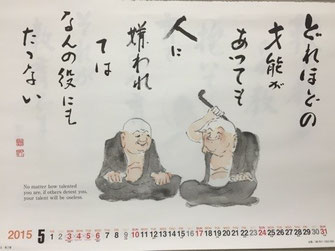 どれほどの
才能が
あっても
人に
嫌われ
ては
なんの役にも
たたない
No matter how talented
you are, if others detest you,
your talent will be useless.
2015
5
1 2 3 4 5 6 7 8 9 10 11 12 13 14 15 16 17 18 19 20 21 22 23 24 25 26 27 28 29 30 31